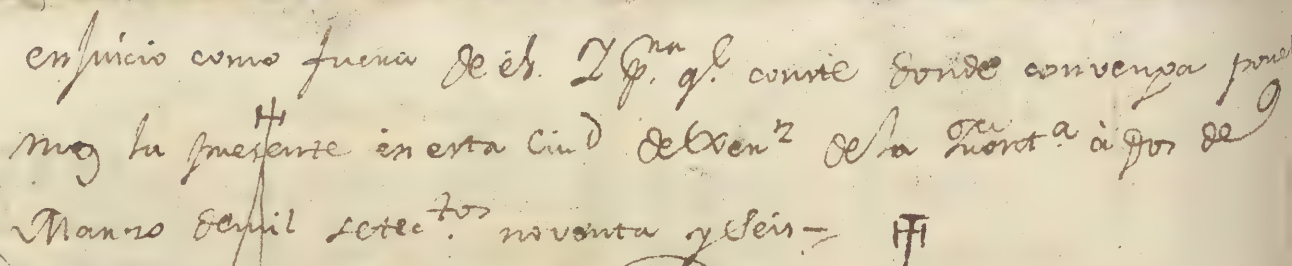 en Juicio como fuera de el. Y p.ª q.e conste donde convenga pone
mos la presente en esta Ciud de Xerez de la Front.ª à dos de
Marzo demil Setec.tos noventa y Seis